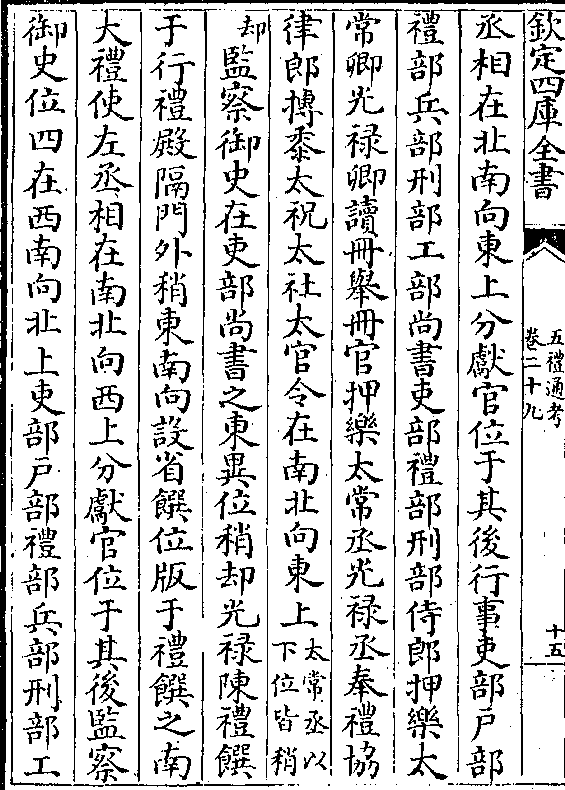 欽定四庫全書
五禮通考
卷二十九
十五
丞相在北南向東上分獻官位于其後行事吏部戸部
禮部兵部刑部工部尚書吏部禮部刑部侍郎押樂太
常卿光禄卿讀冊舉冊官押樂太常丞光禄丞奉禮協
律郎摶黍太祝太社太官令在南北向東上太常丞以下位皆稍
却監察御史在吏部尚書之東異位稍却光禄陳禮饌
于行禮殿隔門外稍東南向設省饌位版于禮饌之南
大禮使左丞相在南北向西上分獻官位于其後監察
御史位四在西南向北上吏部戸部禮部兵部刑部工